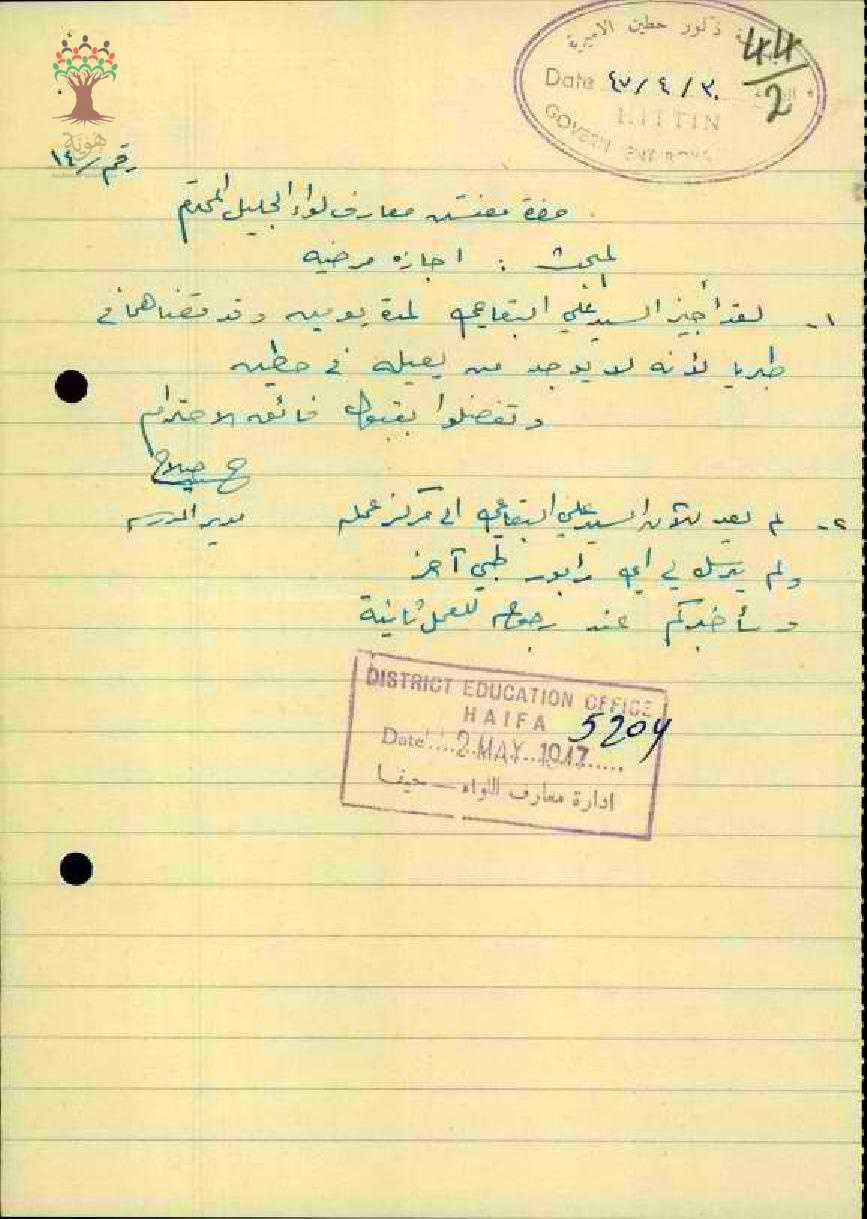 ذكور حطين الاميرية
44/2
Date ٤٧/٤/٣٠
HITTIN
GOVERNMENT BOYS
هوية
رقم/١٤
حضرة مفتش معارف لواء الجليل المحترم
المبحث : اجازه مرضيه
١- لقد أجيز السيد علي البقاعي لمدة يومين وقد قضاهما في
طبريا لأنه لا يوجد من يعيله في حطين
وتفضلوا بقبول فائق الاحترام
صلاح
مدير المدرسه
٢- لم يعد للآن السيد علي البقاعي الى مركز عمله
ولم يرسل لي أي رابور طبي آخر
وسأخبركم عند رجوعه للعمل ثانية
DISTRICT EDUCATION OFFICE
HAIFA 5204
Date 2 MAY 1947
ادارة معارف اللواء — حيفا